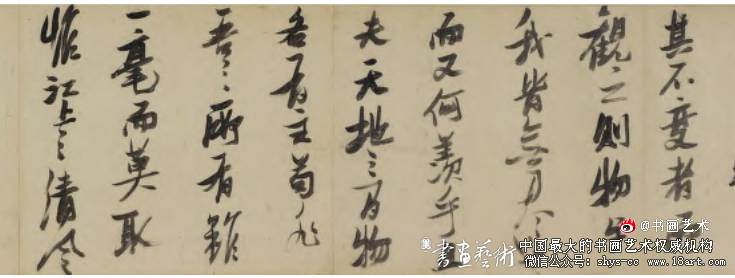 其不變者而
觀之則物
我皆無盡
而又何羨乎
夫天地之間物
各有主苟非
吾之所有雖
一毫而莫取
惟江上之清風
@书画艺术
書畫藝術
中国最大的书画艺术权威机构
微信公众号: shys-cc www.18art.com